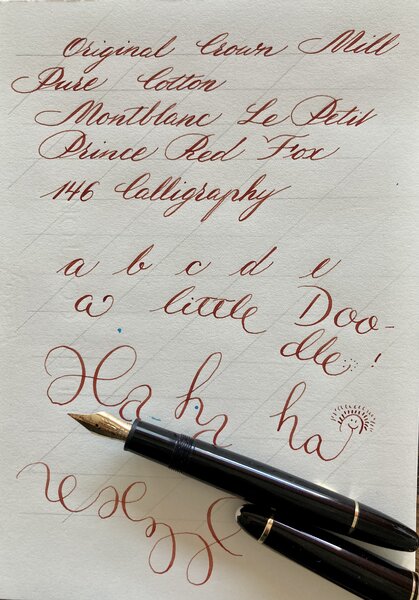 Original Crown Mill
Pure Cotton
Montblanc Le Petit
Prince Red Fox
146 Calligraphy
a b c d e
a little Doo-
dle !
Ha ha ha